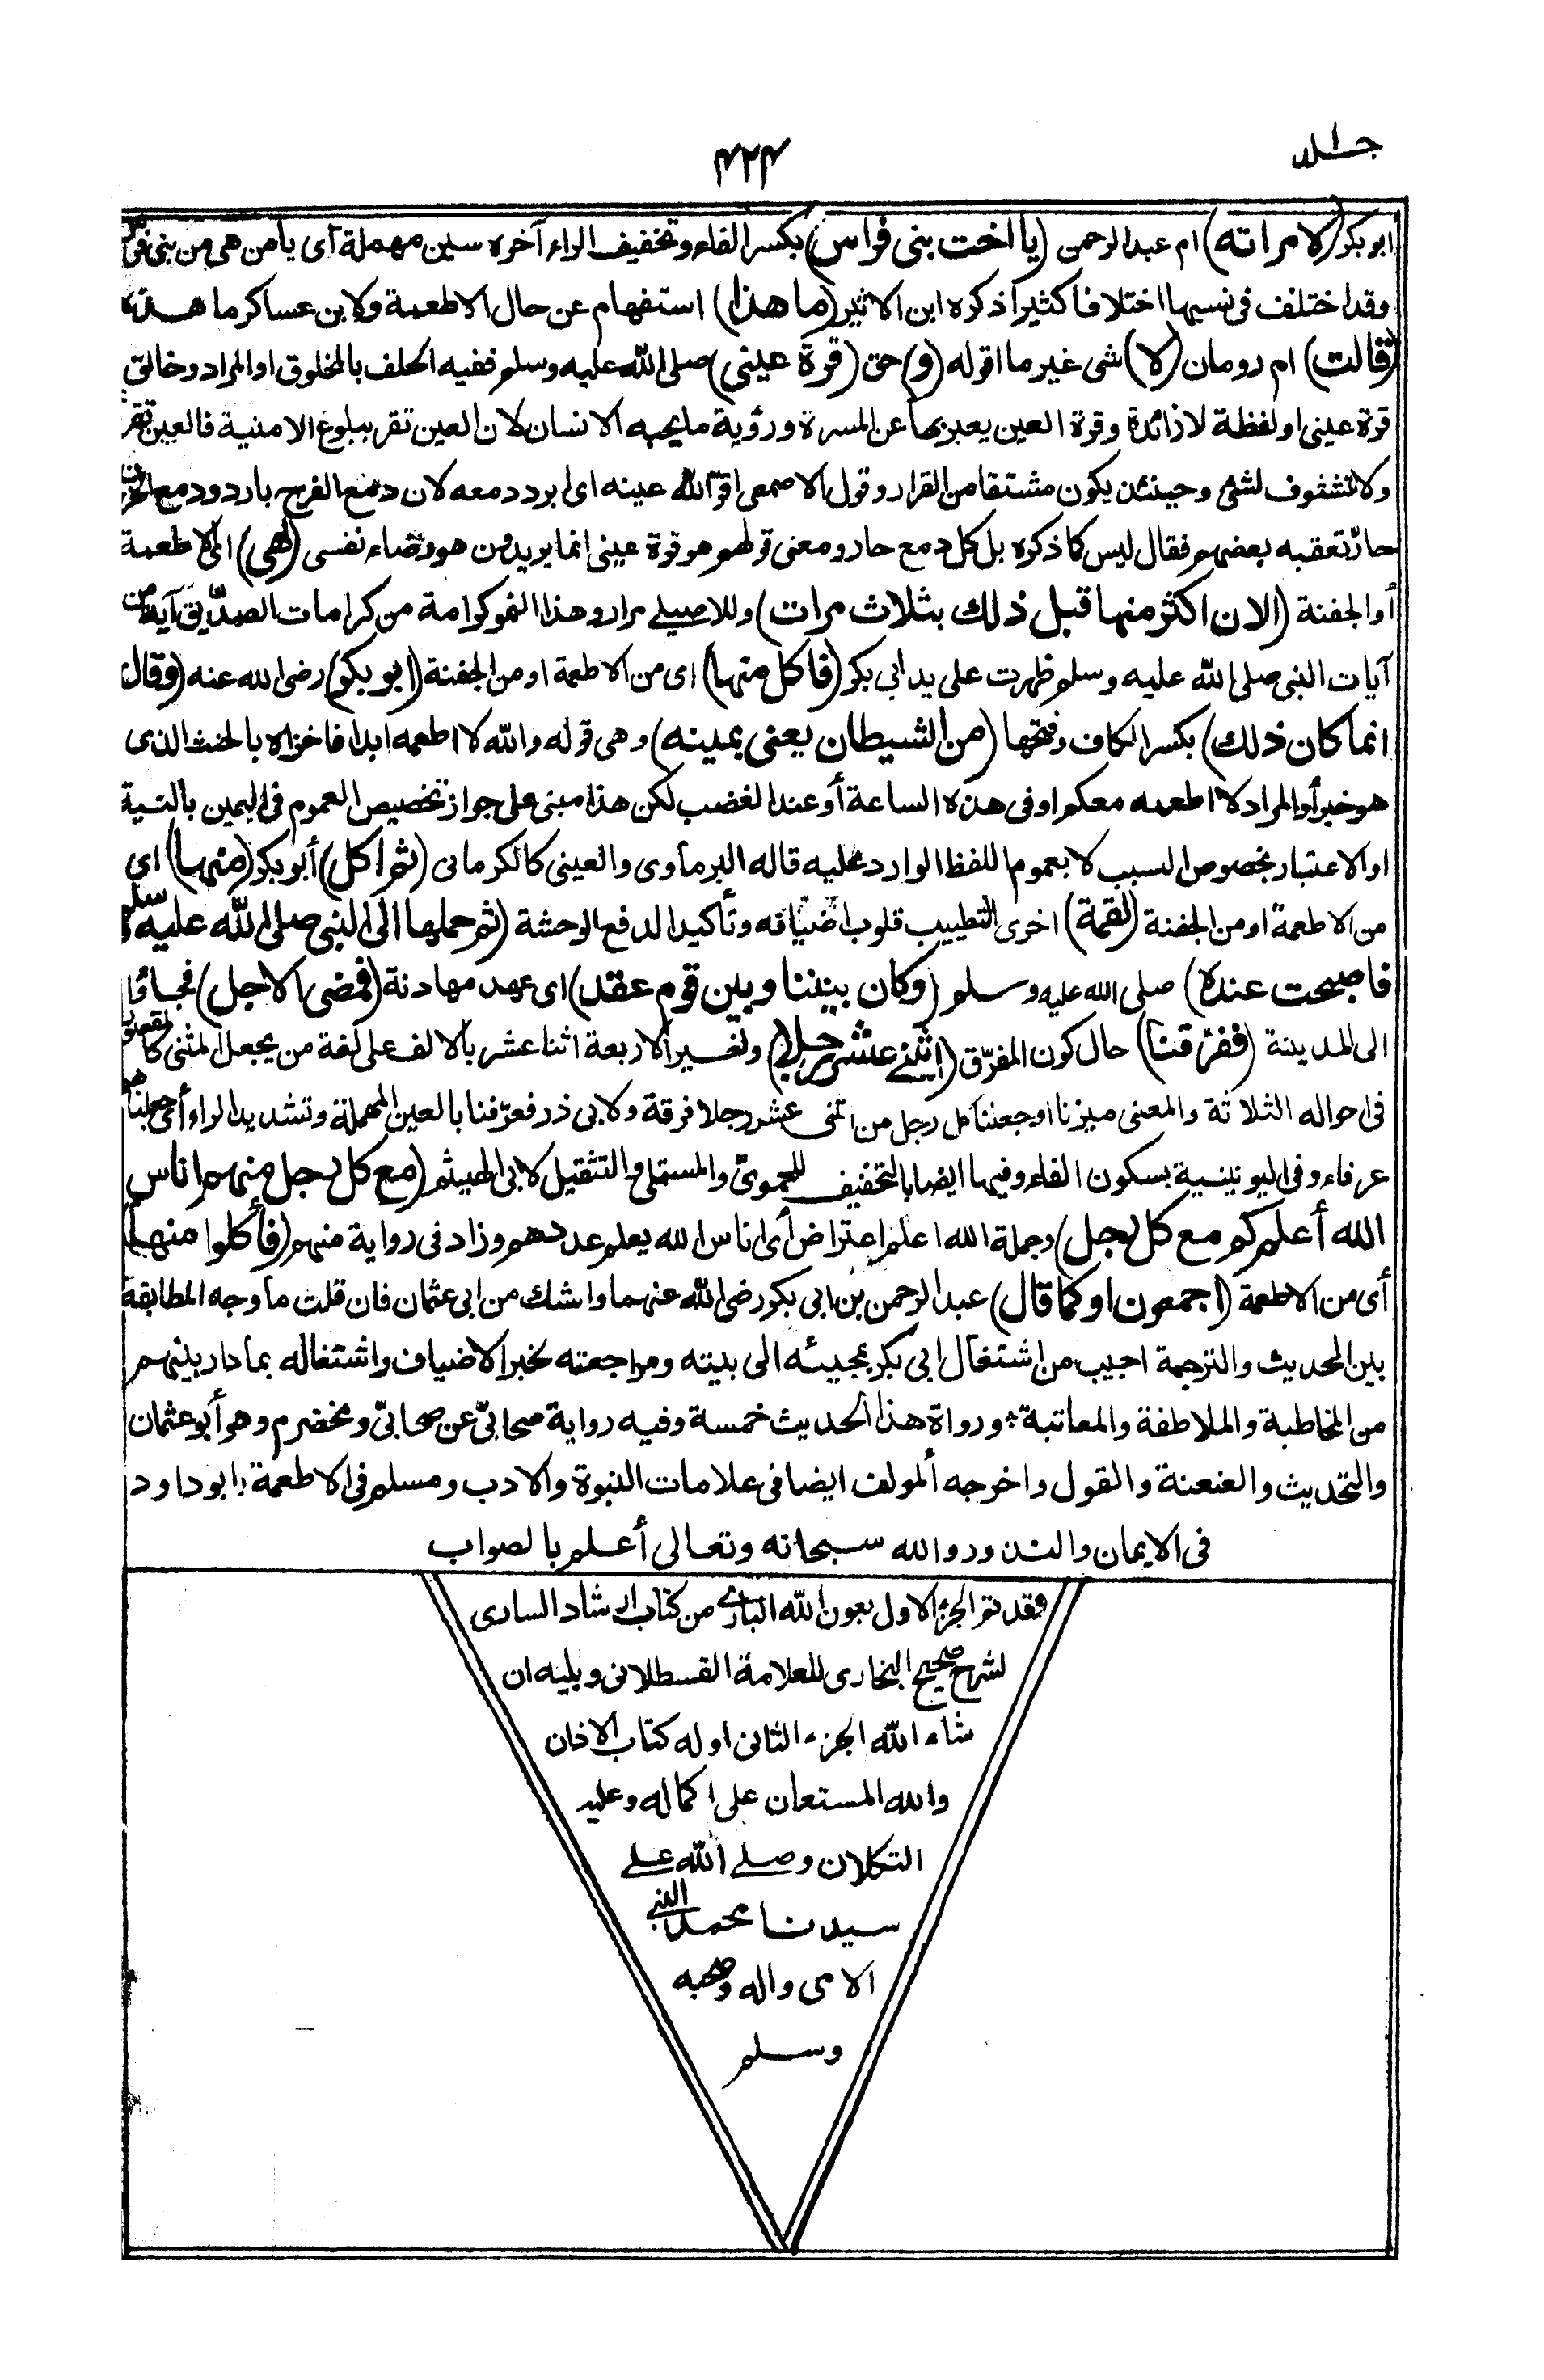 جلد ۱
۴۲۴
ابوبكر (لامراته) ام عبدالرحمن (يا اخت بنى فراس) بكسر الفاء وتخفيف الراء آخره سين مهملة اى يا من هى من بنى فراس
وقد اختلف فى نسبها اختلافا كثيرا ذكره ابن الاثير (ما هذا) استفهام عن حال الاطعمة ولابن عساكر ما هذه
(قالت) ام رومان (لا) شى غير ما اقوله (و) حق (قرة عينى) صلى الله عليه وسلم ففيه الحلف بالمخلوق او المراد وخالق
قرة عينى او لفظة لا زائدة وقرة العين يعبر بها عن المسرة ورؤية ما يحبه الانسان لان العين تقر ببلوغ الامنية فالعين تقر
ولا تتشوف لشئ وحينئذ يكون مشتقا من القرار وقول الاصمعى اقر الله عينه اى ابرد دمعه لان دمع الفرح بارد ودمع الحزن
حار تعقبه بعضهم فقال ليس كما ذكره بل كل دمع حار ومعنى قولهم هو قرة عينى انما يريدون هو رضاء نفسى (لهى) اى الاطعمة
أو الجفنة (الان اكثر منها قبل ذلك بثلاث مرات) وللاصيلى مرار وهذا النمو كرامة من كرامات الصدّيق آية من
آيات النبى صلى الله عليه وسلم ظهرت على يد ابى بكر (فاكل منها) اى من الاطعمة او من الجفنة (ابو بكر) رضى الله عنه (وقال
انما كان ذلك) بكسر الكاف وفتحها (من الشيطان يعنى يمينه) وهى قوله والله لا اطعمه ابدا فاخزاه بالحنث الذى
هو خير أو المراد لا اطعمه معكم او فى هذه الساعة أو عند الغضب لكن هذا مبنى على جواز تخصيص العموم فى اليمين بالنية
او الاعتبار بخصوص السبب لا بعموم اللفظ الوارد عليه قاله البرماوى والعينى كالكرمانى (ثم اكل) أبو بكر (منها) اى
من الاطعمة او من الجفنة (لقمة) اخرى لتطييب قلوب اضيافه وتأكيدا لدفع الوحشة (ثم حملها الى النبى صلى الله عليه وسلم
فاصبحت عنده) صلى الله عليه وسلم (وكان بيننا وبين قوم عقد) اى عهد مهادنة (فمضى الاجل) فجاؤا
الى المدينة (ففرقنا) حال كون المفرّق (اثنى عشر رجلا) ولغير الاربعة اثنا عشر بالالف على لغة من يجعل المثنى كالمقصور
فى احواله الثلاثة والمعنى ميزنا او جعلنا كل رجل من اثنى عشر رجلا فرقة ولابى ذر فعرّفنا بالعين المهملة وتشديد الراء أى جعلناهم
عرفاء وفى اليونينية بسكون الفاء وفيها ايضا بالتخفيف للحموىّ والمستملى والتثقيل لابى الهيثم (مع كل رجل منهم اناس
الله أعلم كم مع كل رجل) وجملة الله اعلم اعتراض أى اناس الله يعلم عددهم وزاد فى رواية منهم (فأكلوا منها)
أى من الاطعمة (اجمعون او كما قال) عبدالرحمن بن ابى بكر رضى الله عنهما والشك من ابى عثمان فان قلت ما وجه المطابقة
بين الحديث والترجمة اجيب من اشتغال ابى بكر بمجيئه الى بيته ومراجعته لخبر الاضياف واشتغاله بما دار بينهم
من المخاطبة والملاطفة والمعاتبة ورواة هذا الحديث خمسة وفيه رواية صحابىّ عن صحابىّ ومخضرم وهو أبو عثمان
والتحديث والعنعنة والقول واخرجه ألمولف ايضا فى علامات النبوة والادب ومسلم فى الاطعمة وابو داود
فى الايمان والنذور والله سبحانه وتعالى أعلم بالصواب
وقد تم الجزء الاول بعون الله البارى من كتاب ارشاد السارى
لشرح صحيح البخارى للعلامة القسطلانى ويليه ان
شاء الله الجزء الثانى اوله كتاب الاذان
والله المستعان على اكماله وعليه
التكلان وصلى الله على
سيدنا محمد النبى
الامى واله وصحبه
وسلم